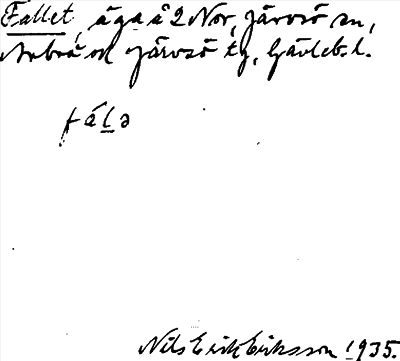 Fallet, äga å 2 Nor, Järvsö sn,
Arbrå och Järvsö tg, Gävleb. l.
fáḷə
Nils Erik Eriksson 1935.